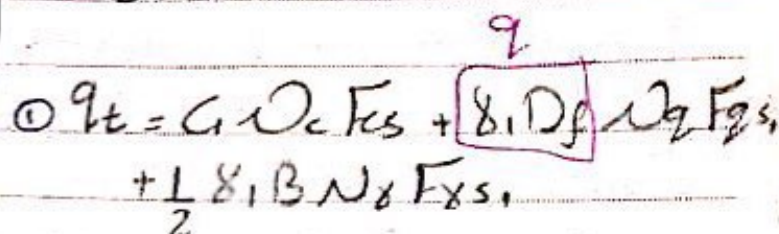 q
① qt = C1 Nc Fcs + γ1 Df Nq Fqs1
+ 1/2 γ1 B Nγ Fγs1